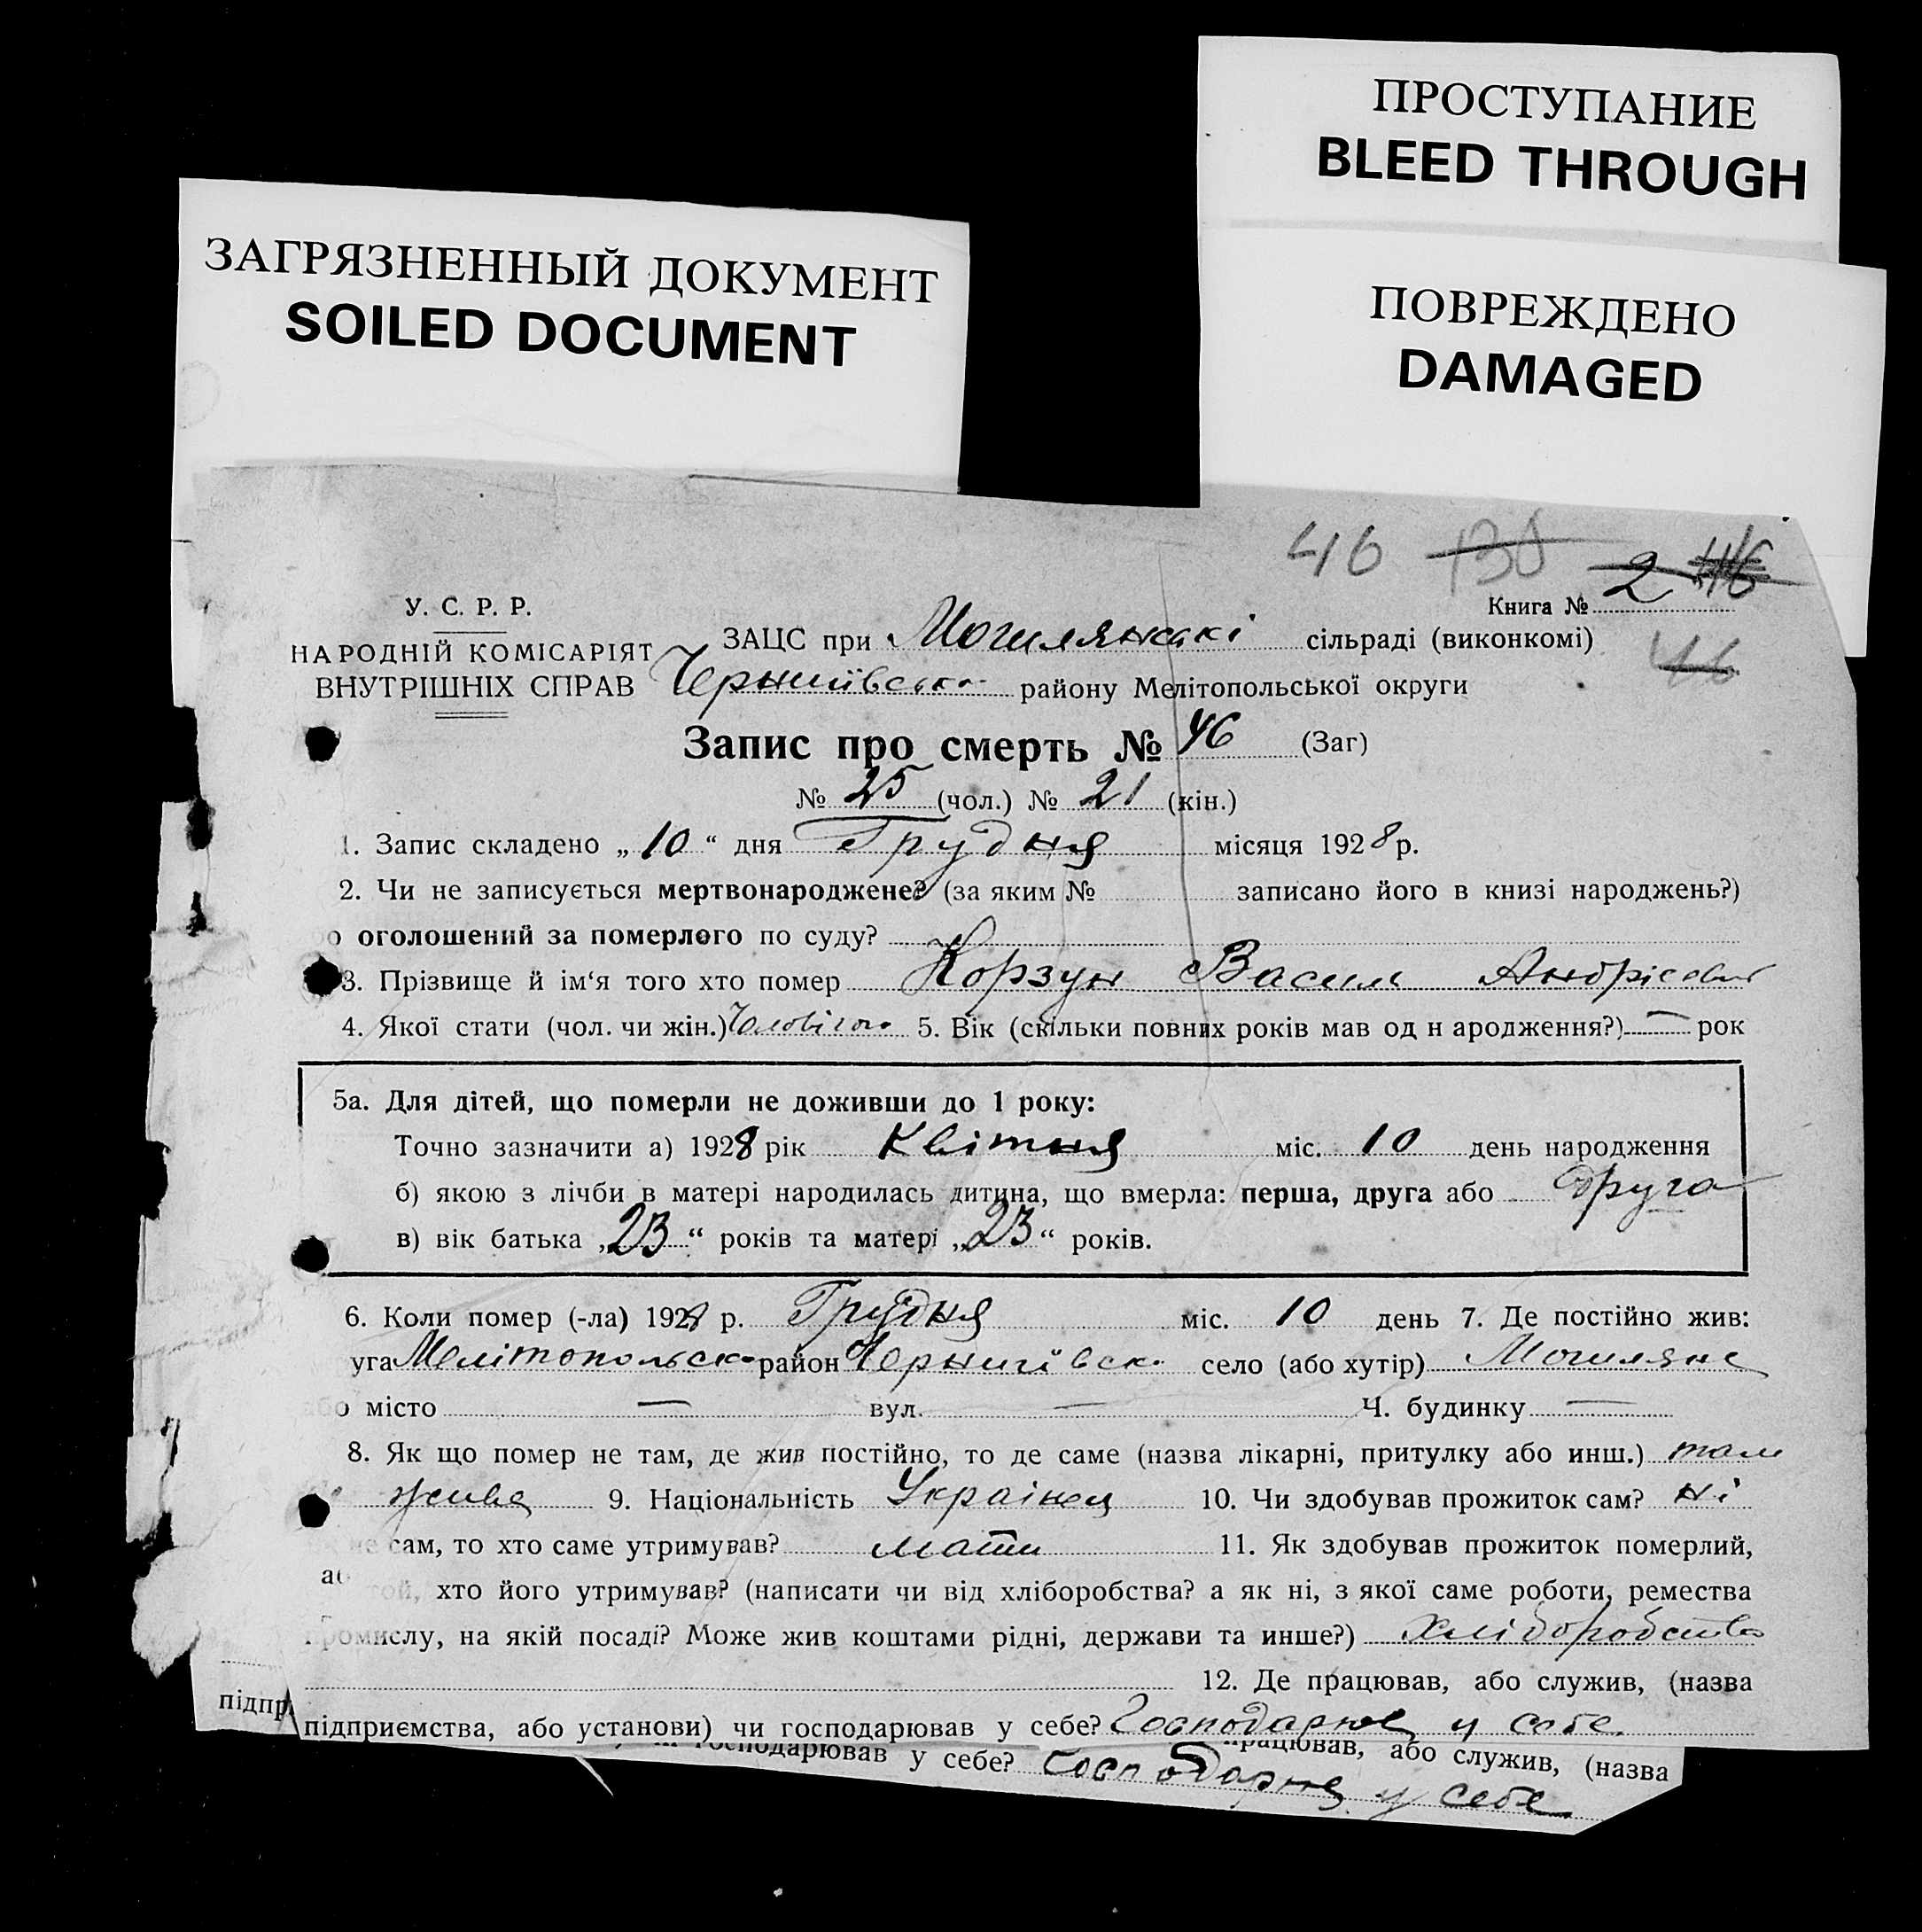 ПРОСТУПАНИЕ
BLEED THROUGH
ЗАГРЯЗНЕННЫЙ ДОКУМЕНТ
SOILED DOCUMENT
ПОВРЕЖДЕНО
DAMAGED
46 130 2 46
У. С. Р. Р.
Книга №
НАРОДНІЙ КОМІСАРІЯТ
ВНУТРІШНІХ СПРАВ
ЗАЦС при Могилянскі сільраді (виконкомі)
46
Чернигівськ района Мелітопольської округи
Запис про смерть № 46 (Заг)
№ 25 (чол.) № 21 (кін.)
1. Запис складено „ 10 “ дня Грудня місяця 1928 р.
2. Чи не записується мертвонароджене? (за яким № записано його в книзі народжень?)
о оголошений за померлого по суду?
3. Прізвище й ім‘я того хто помер Корзун Василь Андрієвич
4. Якої стати (чол. чи жін.) Чоловічого 5. Вік (скільки повних років мав од н ародження?) — рок
5а. Для дітей, що померли не доживши до 1 року:
Точно зазначити а) 1928 рік Квітня міс. 10 день народження
б) якою з лічби в матері народилась дитина, що вмерла: перша, друга або друга
в) вік батька „23“ років та матері „23“ років.
6. Коли помер (-ла) 1928 р. Грудня міс. 10 день 7. Де постійно жив:
уга Мелітопольска район Чернигівск село (або хутір) Могиляне
або місто — вул. — Ч. будинку —
8. Як що помер не там, де жив постійно, то де саме (назва лікарні, притулку або инш.) там
живе 9. Національність Українец 10. Чи здобував прожиток сам? ні
не сам, то хто саме утримував? мати 11. Як здобував прожиток померлий,
аб той, хто його утримував? (написати чи від хліборобства? а як ні, з якої саме роботи, ремества
промислу, на якій посаді? Може жив коштами рідні, держави та инше?) хліборобство
12. Де працював, або служив, (назва
підпр
підприємства, або установи) чи господарював у себе? Господарюе у себе
господарював у себе? Господарюе у себе
працював, або служив, (назва